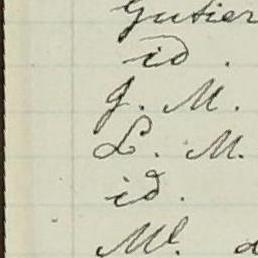 Gutier
id.
J. M.
L. M.
id.
Ml. a